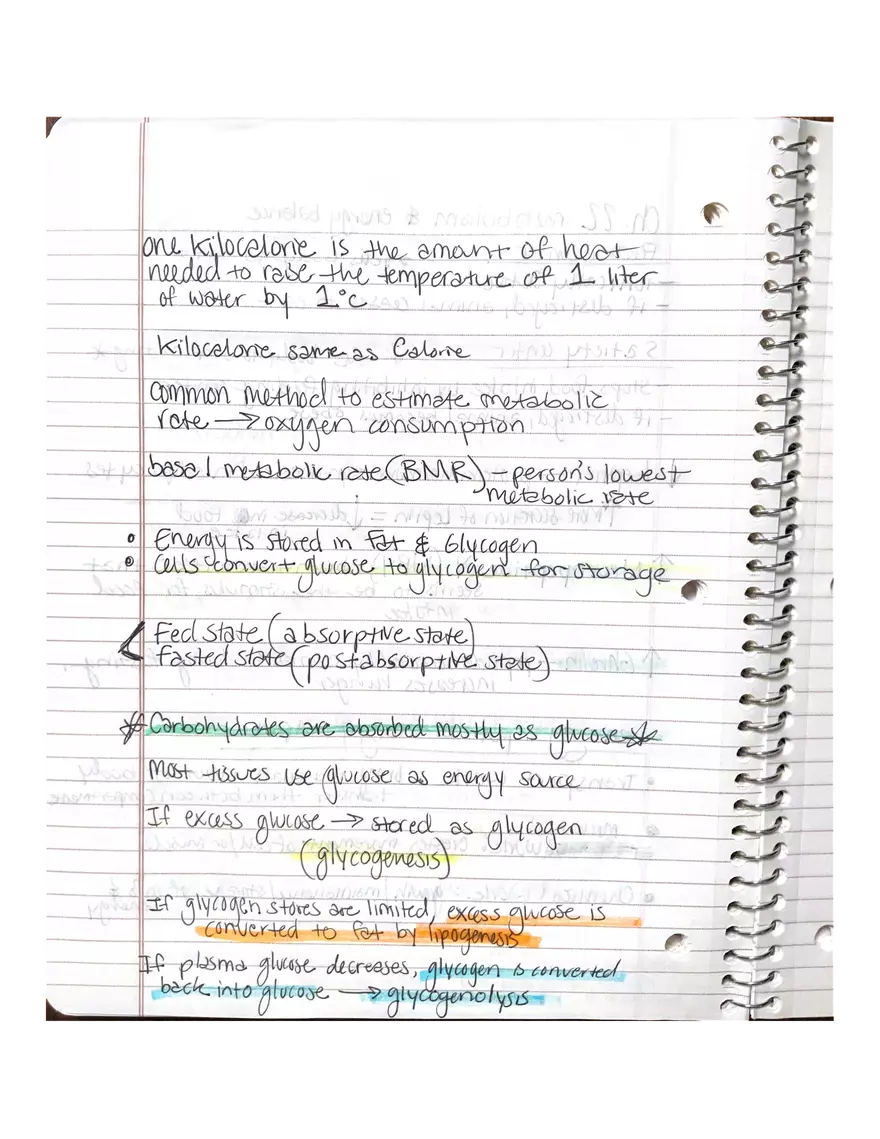 one kilocalorie is the amount of heat
needed to raise the temperature of 1 liter
of water by 1°C
Kilocalorie same as Calorie
common method to estimate metabolic
rate → oxygen consumption
basal metabolic rate (BMR) - person's lowest
metabolic rate
• Energy is stored in fat & Glycogen
• Cells convert glucose to glycogen for storage
< Fed state (absorptive state)
fasted state (postabsorptive state)
* Carbohydrates are absorbed mostly as glucose *
Most tissues use glucose as energy source
If excess glucose → stored as glycogen
(glycogenesis)
If glycogen stores are limited, excess glucose is
converted to fat by lipogenesis
If plasma glucose decreases, glycogen is converted
back into glucose → glycogenolysis